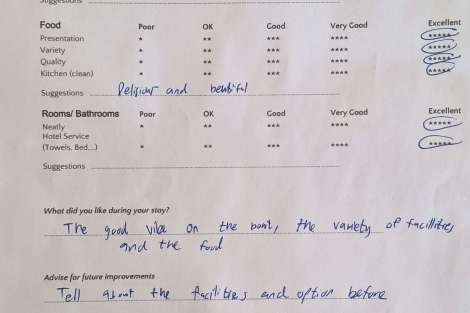 Suggestions
Food Poor OK Good Very Good Excellent
Presentation * ** *** **** *****
Variety * ** *** **** *****
Quality * ** *** **** *****
Kitchen (clean) * ** *** **** *****
Suggestions Delisiour and beutiful
Rooms/ Bathrooms Poor OK Good Very Good Excellent
Neatly * ** *** **** *****
Hotel Service
(Towels, Bed...) * ** *** **** *****
Suggestions
What did you like during your stay?
The good vibe on the boat, the variety of facillities
and the food
Advise for future improvements
Tell about the facilities and option before